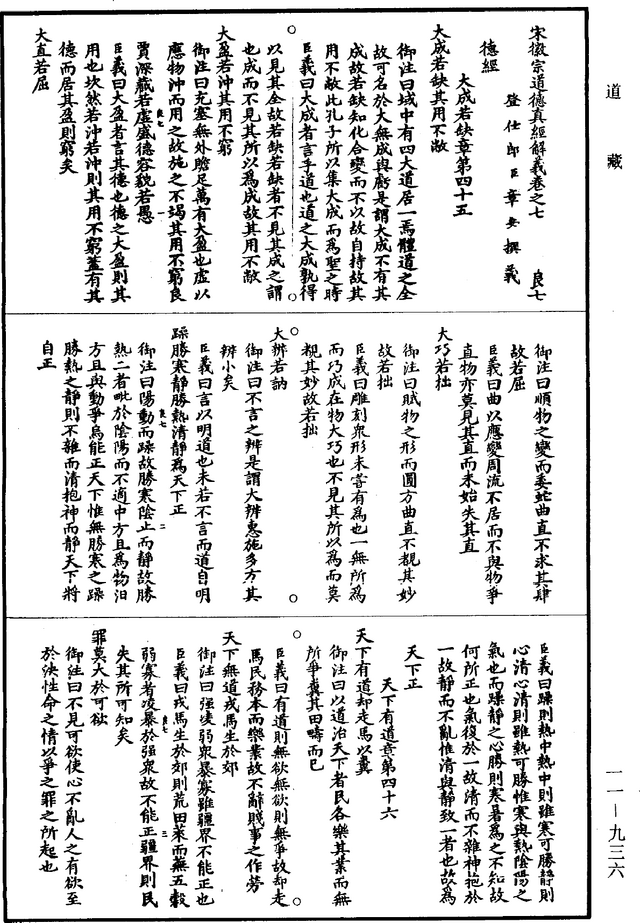 道藏
宋徽宗道德真經解義卷之七　良七
登仕郎臣章安撰義
德經
大成若缺章第四十五
大成若缺其用不敝
御注曰域中有四大道居一焉體道之全
故可名於大無成與虧是謂大成不有其
成故若缺知化合變而不以故自持故其
用不敝此孔子所以集大成而為聖之時
臣義曰大成者言乎道也道之大成孰得
以見其全故若缺若缺者不見其成之謂
也成而不見其所以為成故其用不敝
大盈若沖其用不窮
御注曰充塞無外贍足萬有大盈也虛以
應物沖而用之故施之不竭其用不窮良
賈深藏若虛盛德容貌若愚
臣義曰大盈者言其德也德之大盈則其
用也坎然若沖若沖則其用不窮蓋有其
德而居其盈則窮矣
大直若屈
御注曰順物之變而委蛇曲直不求其肆
故若屈
臣義曰曲以應變周流不居而不與物爭
直物亦莫見其直而未始失其直
大巧若拙
御注曰賦物之形而圓方曲直不覩其妙
故若拙
臣義曰雕刻衆形未嘗有為也一無所為
而巧成在物大巧也不見其所以為而莫
覩其妙故若拙
大辯若訥
御注曰不言之辯是謂大辯惠施多方其
辯小矣
臣義曰言以明道也未若不言而道自明
躁勝寒靜勝熱清靜為天下正
御注曰陽動而躁故勝寒陰止而靜故勝
熱二者毗於陰陽而不適中方且為物汩
方且與動爭烏能正天下惟無勝寒之躁
勝熱之靜則不雜而清抱神而靜天下將
自正
臣義曰躁則熱中熱中則雖寒可勝靜則
心清心清則雖熱可勝惟寒與熱陰陽之
氣也而躁靜之心勝則寒暑為之不知故
何所正也氣復於一故清而不雜神抱於
一故靜而不亂惟清與靜致一者也故為
天下正
天下有道章第四十六
天下有道却走馬以糞
御注曰以道治天下者民各樂其業而無
所爭糞其田疇而已
臣義曰有道則無欲無欲則無爭故却走
馬民務本而樂業故不辭賤事之作勞
天下無道戎馬生於郊
御注曰强凌弱衆暴寡雖疆界不能正也
臣義曰戎馬生於郊則荒田萊而蕪五穀
弱寡者咬暴於强衆故不能正疆界則民
失其所可知矣
罪莫大於可欲
御注曰不見可欲使心不亂人之有欲至
於決性命之情以爭之罪之所起也
一一—九三六